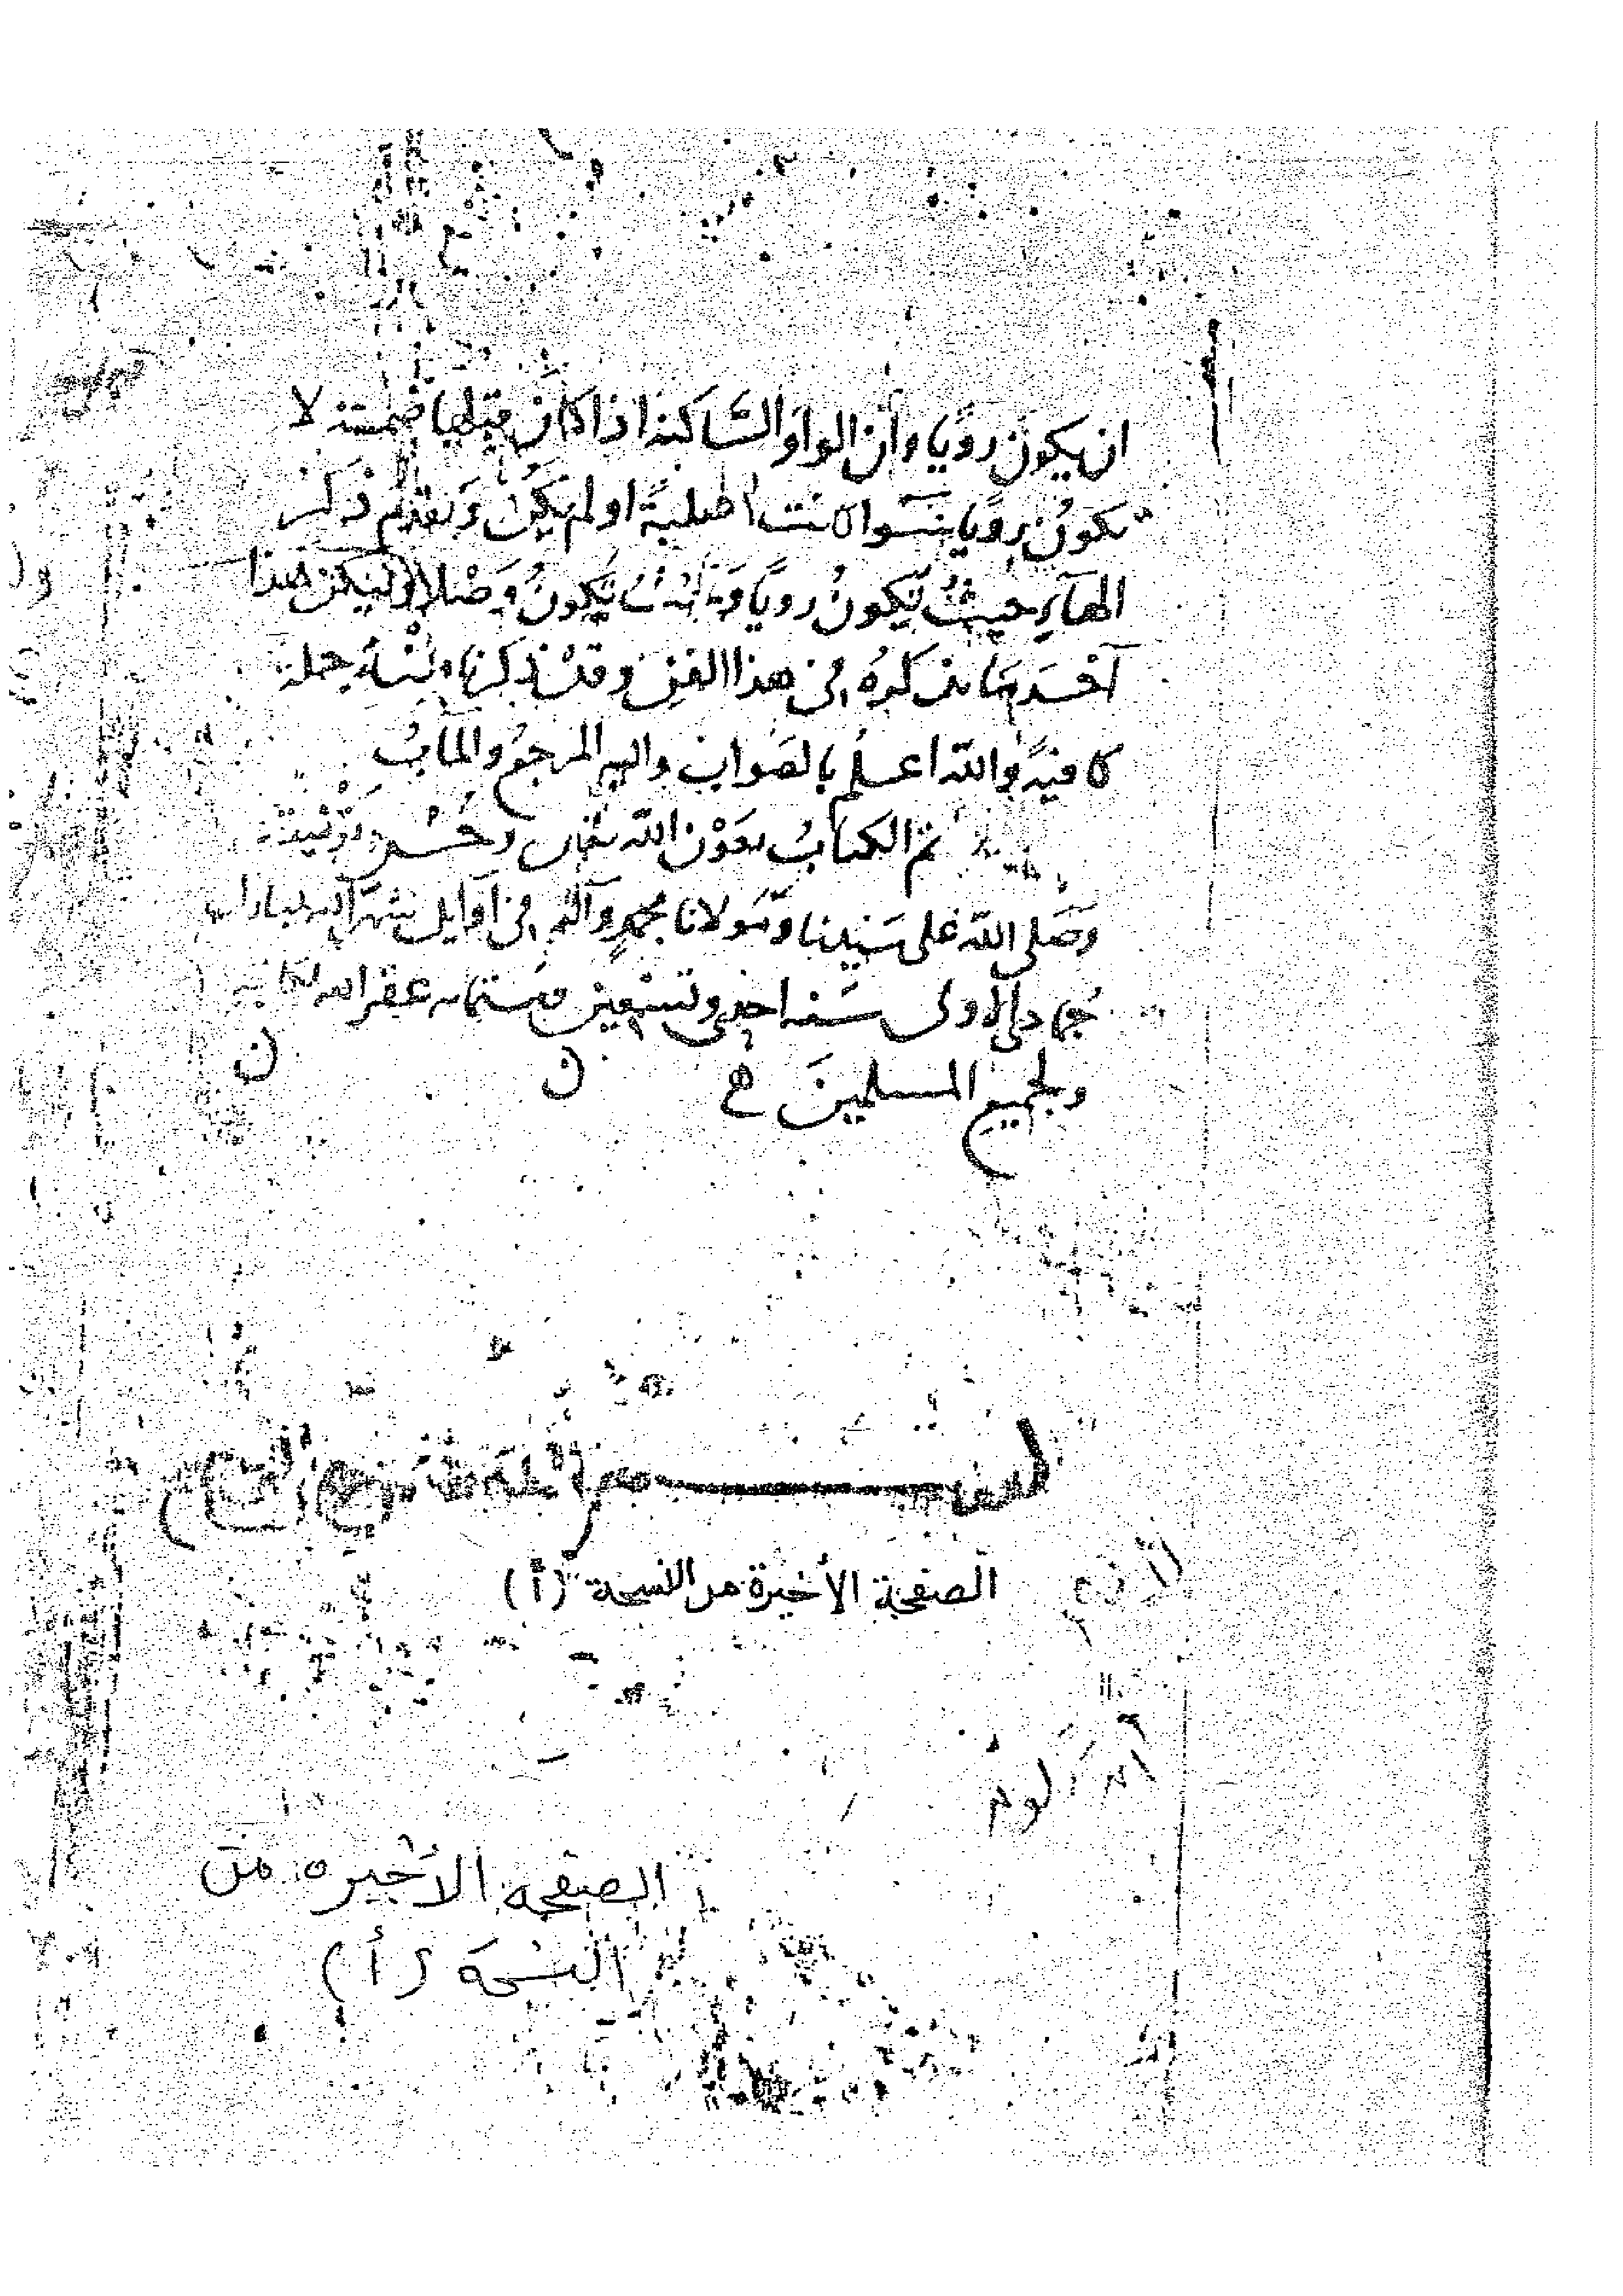 ان يكون رويا وأن الواو الساكنة اذا كان قبلها ضمة لا
تكون رويا سوا كانت اصلية او لم يكن وتقدم ذكر
الهآء حيث تكون رويا وحيث تكون وصلا وليكن هذا
آخر ما نذكره في هذا الفن وقد ذكرنا منه جملة
كافية والله اعلم بالصواب واليه المرجع والمآب
تم الكتاب بعون الله تعالى وحسن توفيقه
وصلى الله على سيدنا ومولانا محمد وآله في اوايل شهر الله المبارك
جمادى الاولى سنه احدى وتسعين وستمايه غفر الله لكاتبه
ولجميع المسلمين
الصفحة الأخيرة من النسخة (أ)
الصفحة الأخيره من
النسخة (أ)